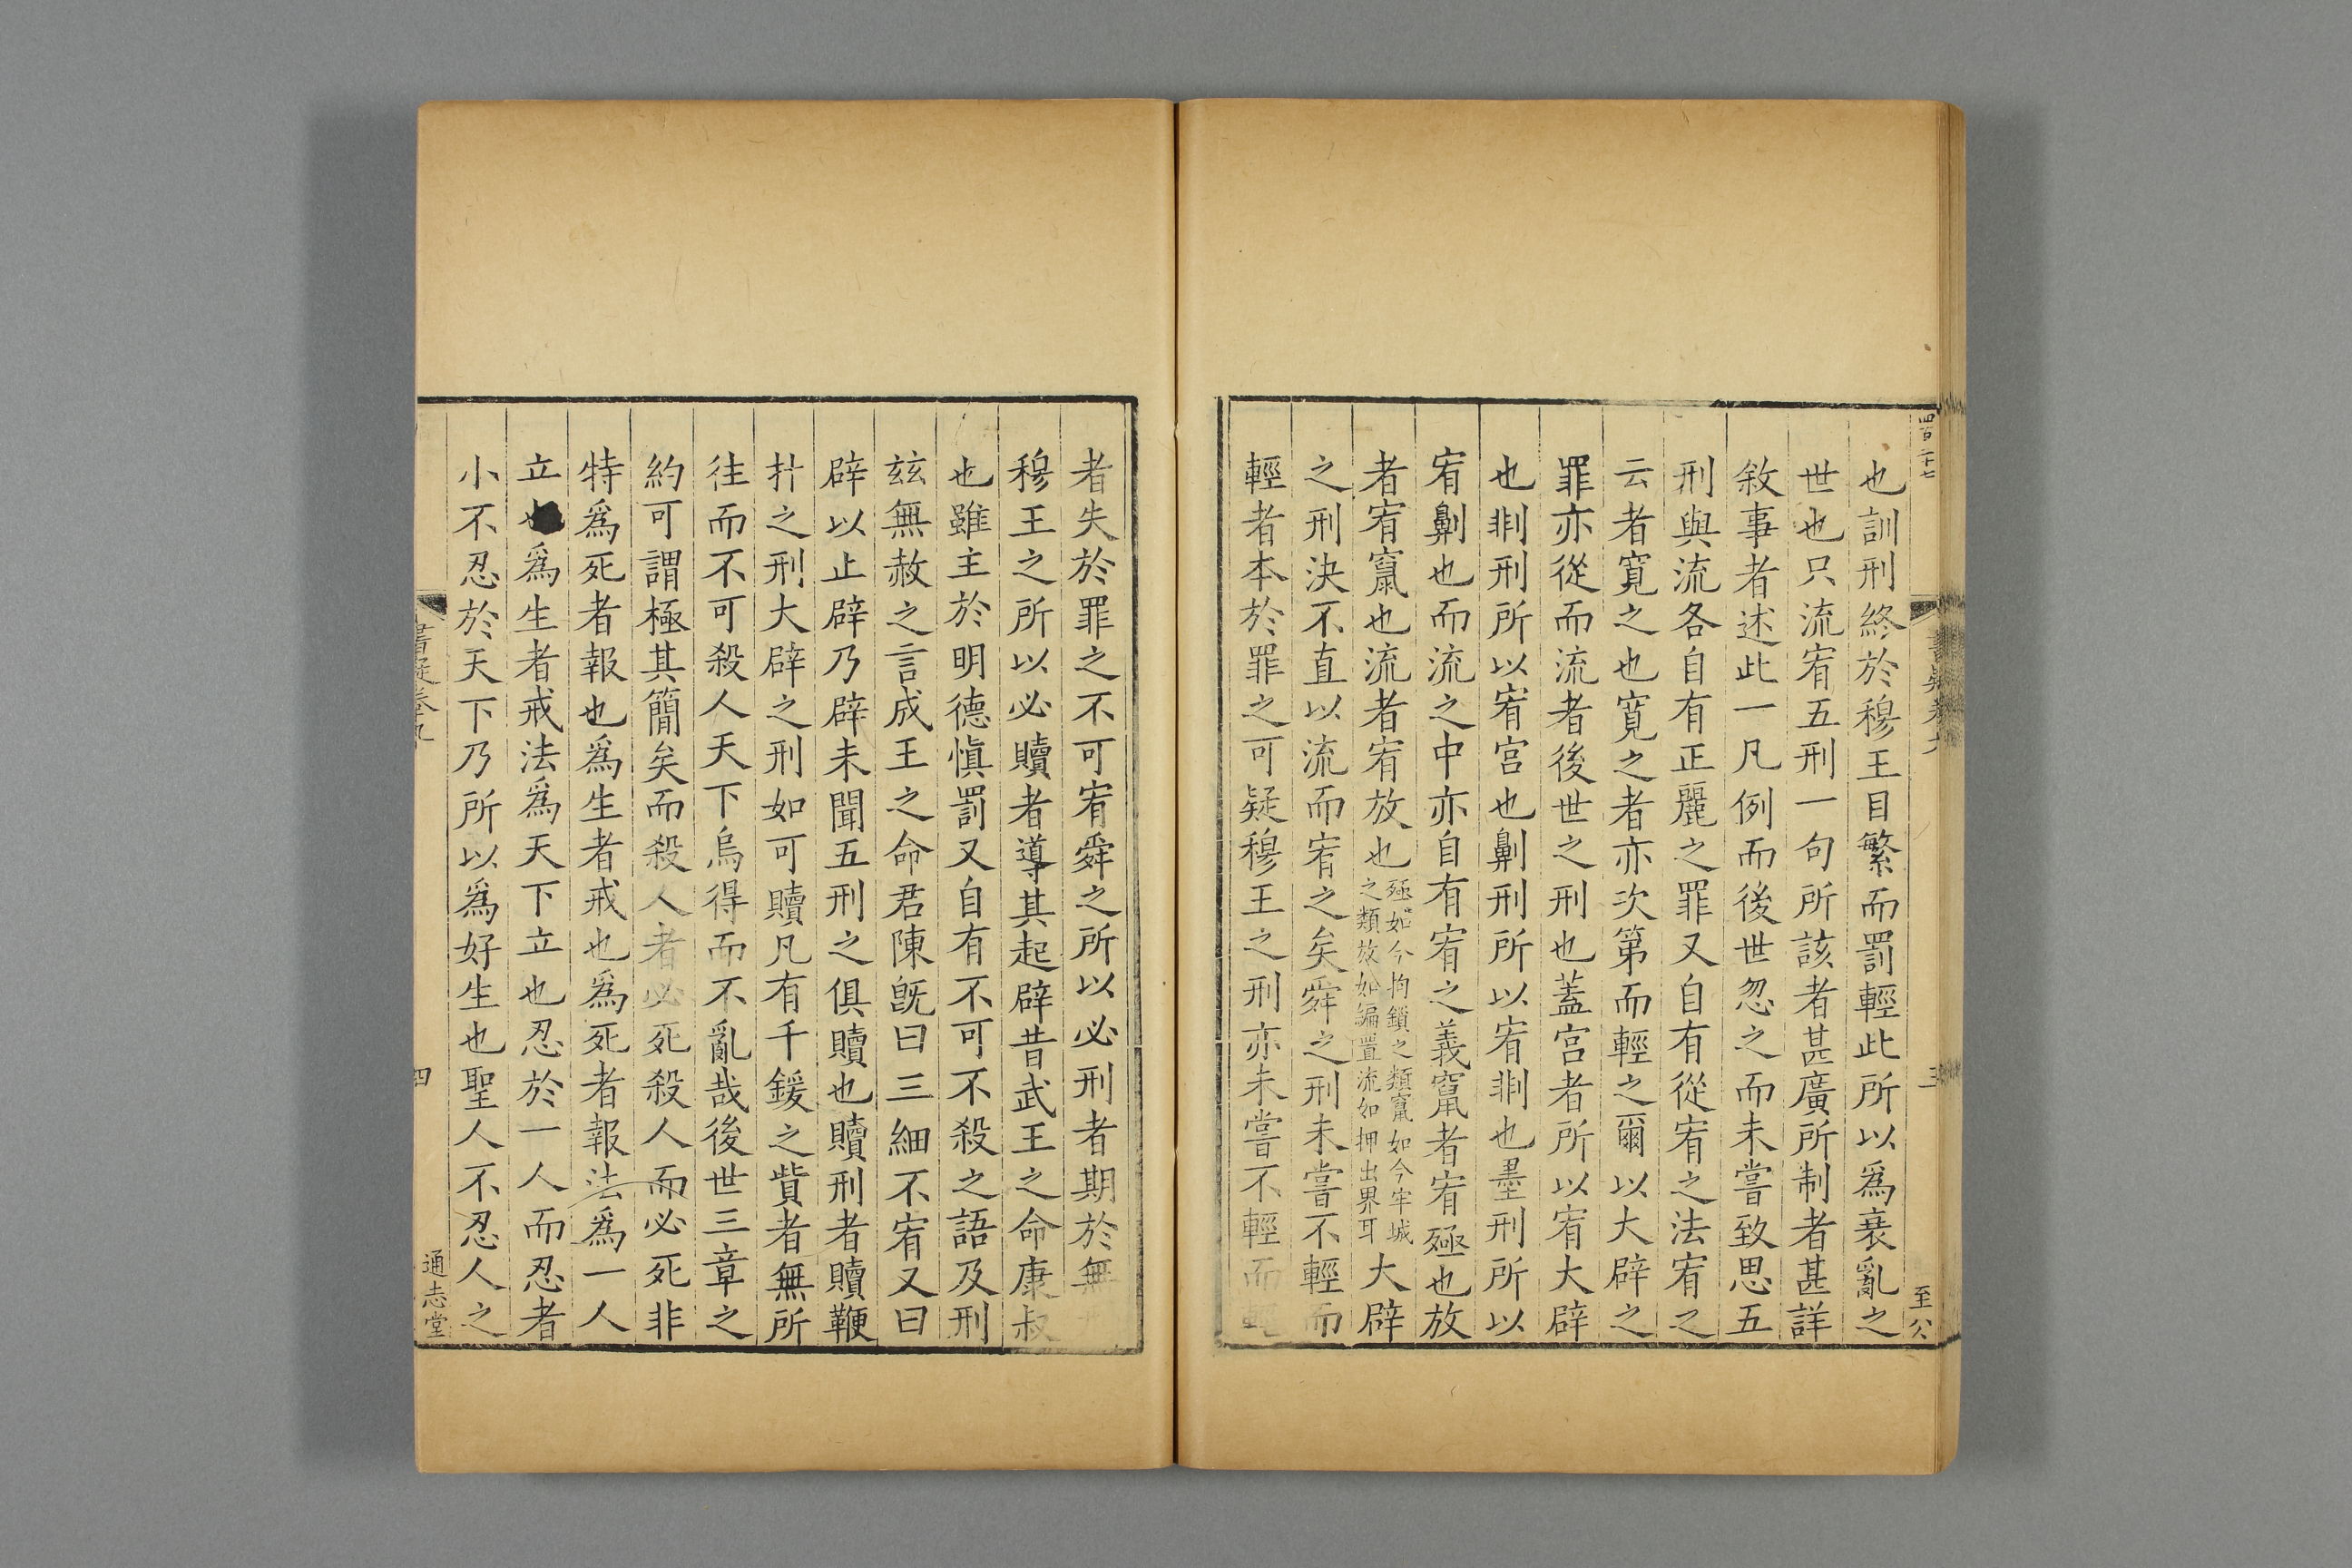 四百二十七
書疑卷九
三
至公
也訓刑終於穆王目繁而罰輕此所以爲衰亂之
世也只流宥五刑一句所該者甚廣所制者甚詳
敘事者述此一凡例而後世忽之而未嘗致思五
刑與流各自有正麗之罪又自有從宥之法宥之
云者寛之也寛之者亦次第而輕之爾以大辟之
罪亦從而流者後世之刑也蓋宮者所以宥大辟
也剕刑所以宥宮也劓刑所以宥剕也墨刑所以
宥劓也而流之中亦自有宥之義竄者宥殛也放
者宥竄也流者宥放也殛如今拘鎖之類竄如今牢城之類放如編置流如押出界耳大辟
之刑決不直以流而宥之矣舜之刑未嘗不輕而
輕者本於罪之可疑穆王之刑亦未嘗不輕而
者失於罪之不可宥舜之所以必刑者期於無
穆王之所以必贖者導其起辟昔武王之命康叔
也雖主於明德愼罰又自有不可不殺之語及刑
玆無赦之言成王之命君陳旣曰三細不宥又曰
辟以止辟乃辟未聞五刑之俱贖也贖刑者贖鞭
扑之刑大辟之刑如可贖凡有千鍰之貲者無所
往而不可殺人天下烏得而不亂哉後世三章之
約可謂極其簡矣而殺人者必死殺人而必死非
特爲死者報也爲生者戒也爲死者報法爲一人
立也爲生者戒法爲天下立也忍於一人而忍者
小不忍於天下乃所以爲好生也聖人不忍人之
書疑卷九
四
通志堂